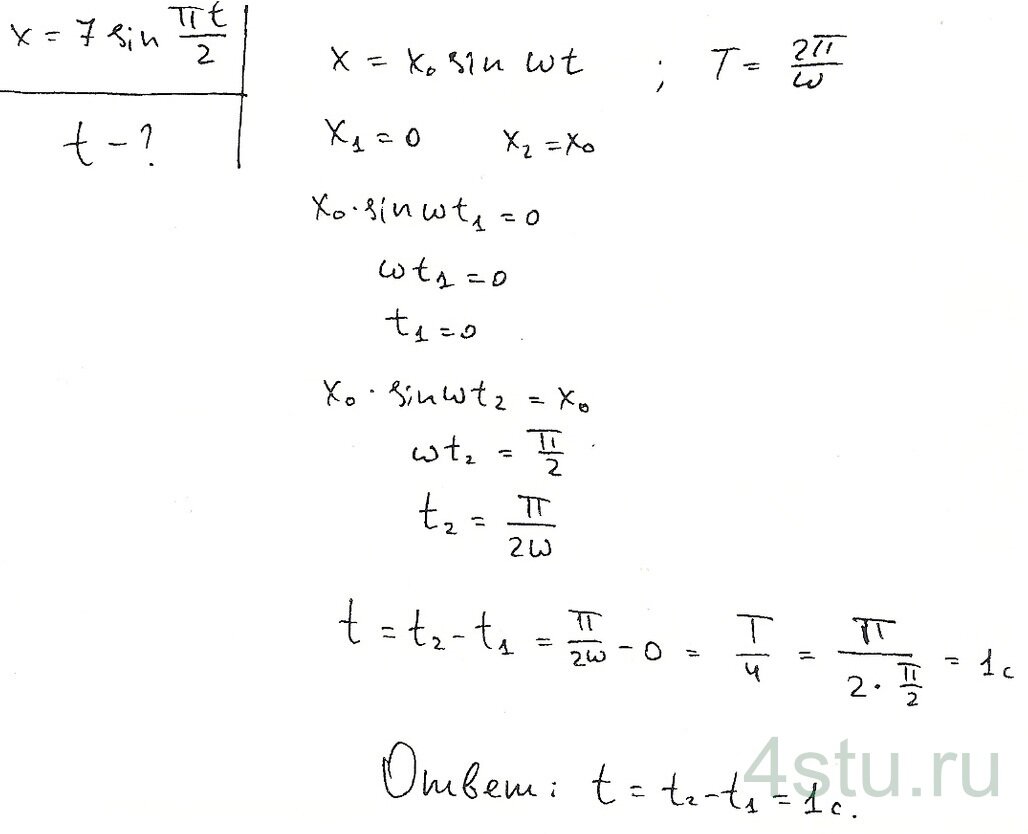 x = 7 sin πt/2
t - ?
x = x₀ sin ωt ; T = 2π/ω
x₁ = 0 x₂ = x₀
x₀ · sin ωt₁ = 0
ωt₁ = 0
t₁ = 0
x₀ · sin ωt₂ = x₀
ωt₂ = π/2
t₂ = π/2ω
t = t₂ - t₁ = π/2ω - 0 = T/4 = π/(2 · π/2) = 1 с
Ответ: t = t₂ - t₁ = 1 с.
4stu.ru